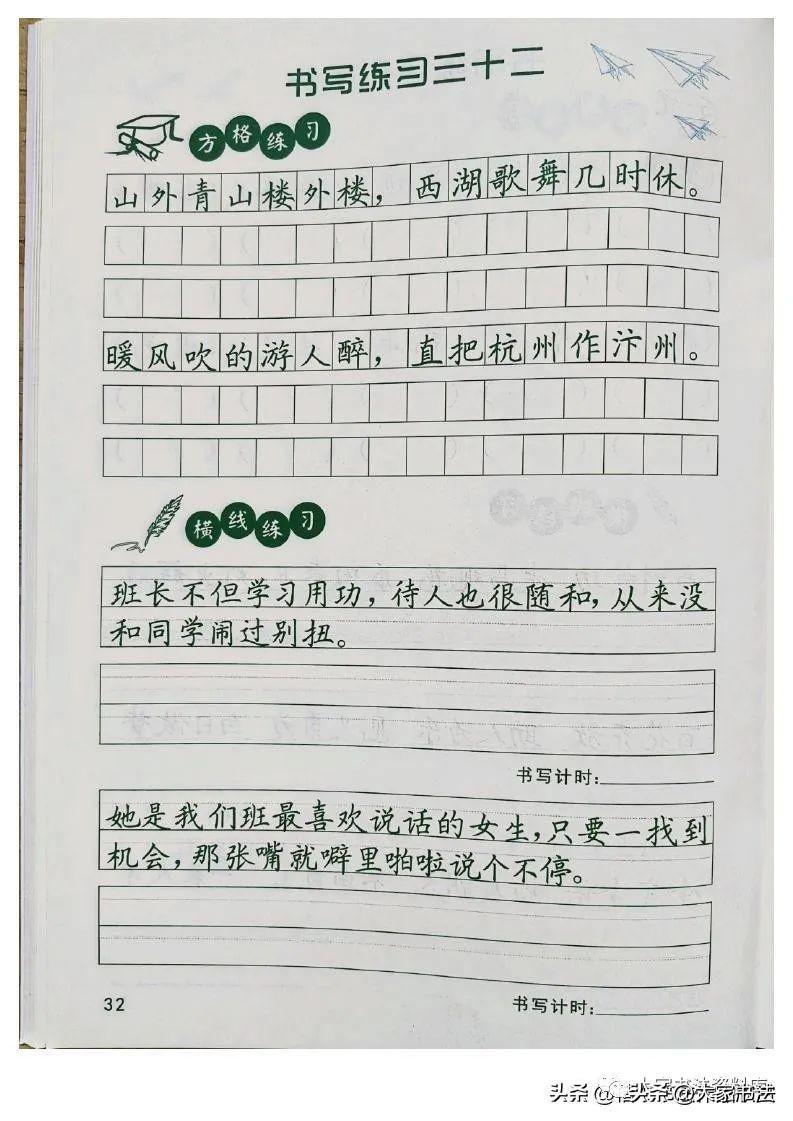 书写练习三十二
方格练习
山外青山楼外楼，西湖歌舞几时休。
暖风吹的游人醉，直把杭州作汴州。
横线练习
班长不但学习用功，待人也很随和，从来没
和同学闹过别扭。
书写计时：
她是我们班最喜欢说话的女生，只要一找到
机会，那张嘴就噼里啪啦说个不停。
32
书写计时：
头条@大家书法